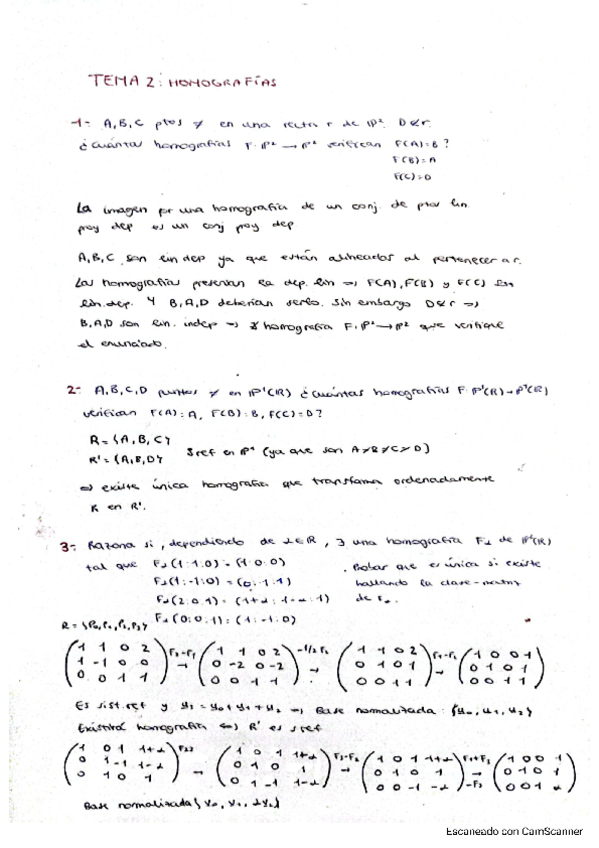 TEMA 2: HOMOGRAFÍAS
1- A, B, C ptos ≠ en una recta r de P². D∉r.
¿Cuántas homografías F: P² → P² verifican F(A)=B?
F(B)=A
F(C)=D
La imagen por una homografía de un conj. de ptos lin.
proy dep es un conj proy dep
A, B, C son lin dep ya que están alineados al pertenecer a r.
Las homografías preservan la dep. lin ⇒ F(A), F(B) y F(C) son
lin. dep. Y B, A, D deberían serlo. Sin embargo D∉r ⇒
B, A, D son lin. indep ⇒ ∄ homografía F: P² → P² que verifique
el enunciado.
2- A, B, C, D puntos ≠ en P¹(R) ¿Cuántas homografías F: P¹(R) → P¹(R)
verifican F(A)=A, F(B)=B, F(C)=D?
R = {A, B, C}
R' = {A, B, D} Sref en P¹ (ya que son A≠B≠C≠D)
⇒ existe única homografía que transforma ordenadamente
R en R'.
3- Razona si, dependiendo de α∈R, ∃ una homografía Fα de P²(R)
tal que Fα(1:1:0) = (1:0:0)
Fα(1:-1:0) = (0:1:1)
Fα(2:0:1) = (1+α:1-α:1)
Fα(0:0:1) = (1:-1:0)
. Probar que es única si existe
hallando la clase-matriz
de Fα.
R = {P₀, P₁, P₂, P₃}
(1 1 0 2 / 1 -1 0 0 / 0 0 1 1) F₂-F₁ → (1 1 0 2 / 0 -2 0 -2 / 0 0 1 1) -1/2 F₂ → (1 1 0 2 / 0 1 0 1 / 0 0 1 1) F₁-F₂ → (1 0 0 1 / 0 1 0 1 / 0 0 1 1)
Es sist. ref y u₃ = u₀+u₁+u₂ ⇒ Base normalizada: {u₀, u₁, u₂}
Existirá homografía ⇔ R' es s ref
(1 0 1 1+α / 0 1 -1 1-α / 0 1 0 1) F₂₃ → (1 0 1 1+α / 0 1 0 1 / 0 1 -1 1-α) F₃-F₂ → (1 0 1 1+α / 0 1 0 1 / 0 0 -1 -α) F₁+F₃ → -F₃ (1 0 0 1 / 0 1 0 1 / 0 0 1 α)
Base normalizada {v₀, v₁, αv₂}
Escaneado con CamScanner